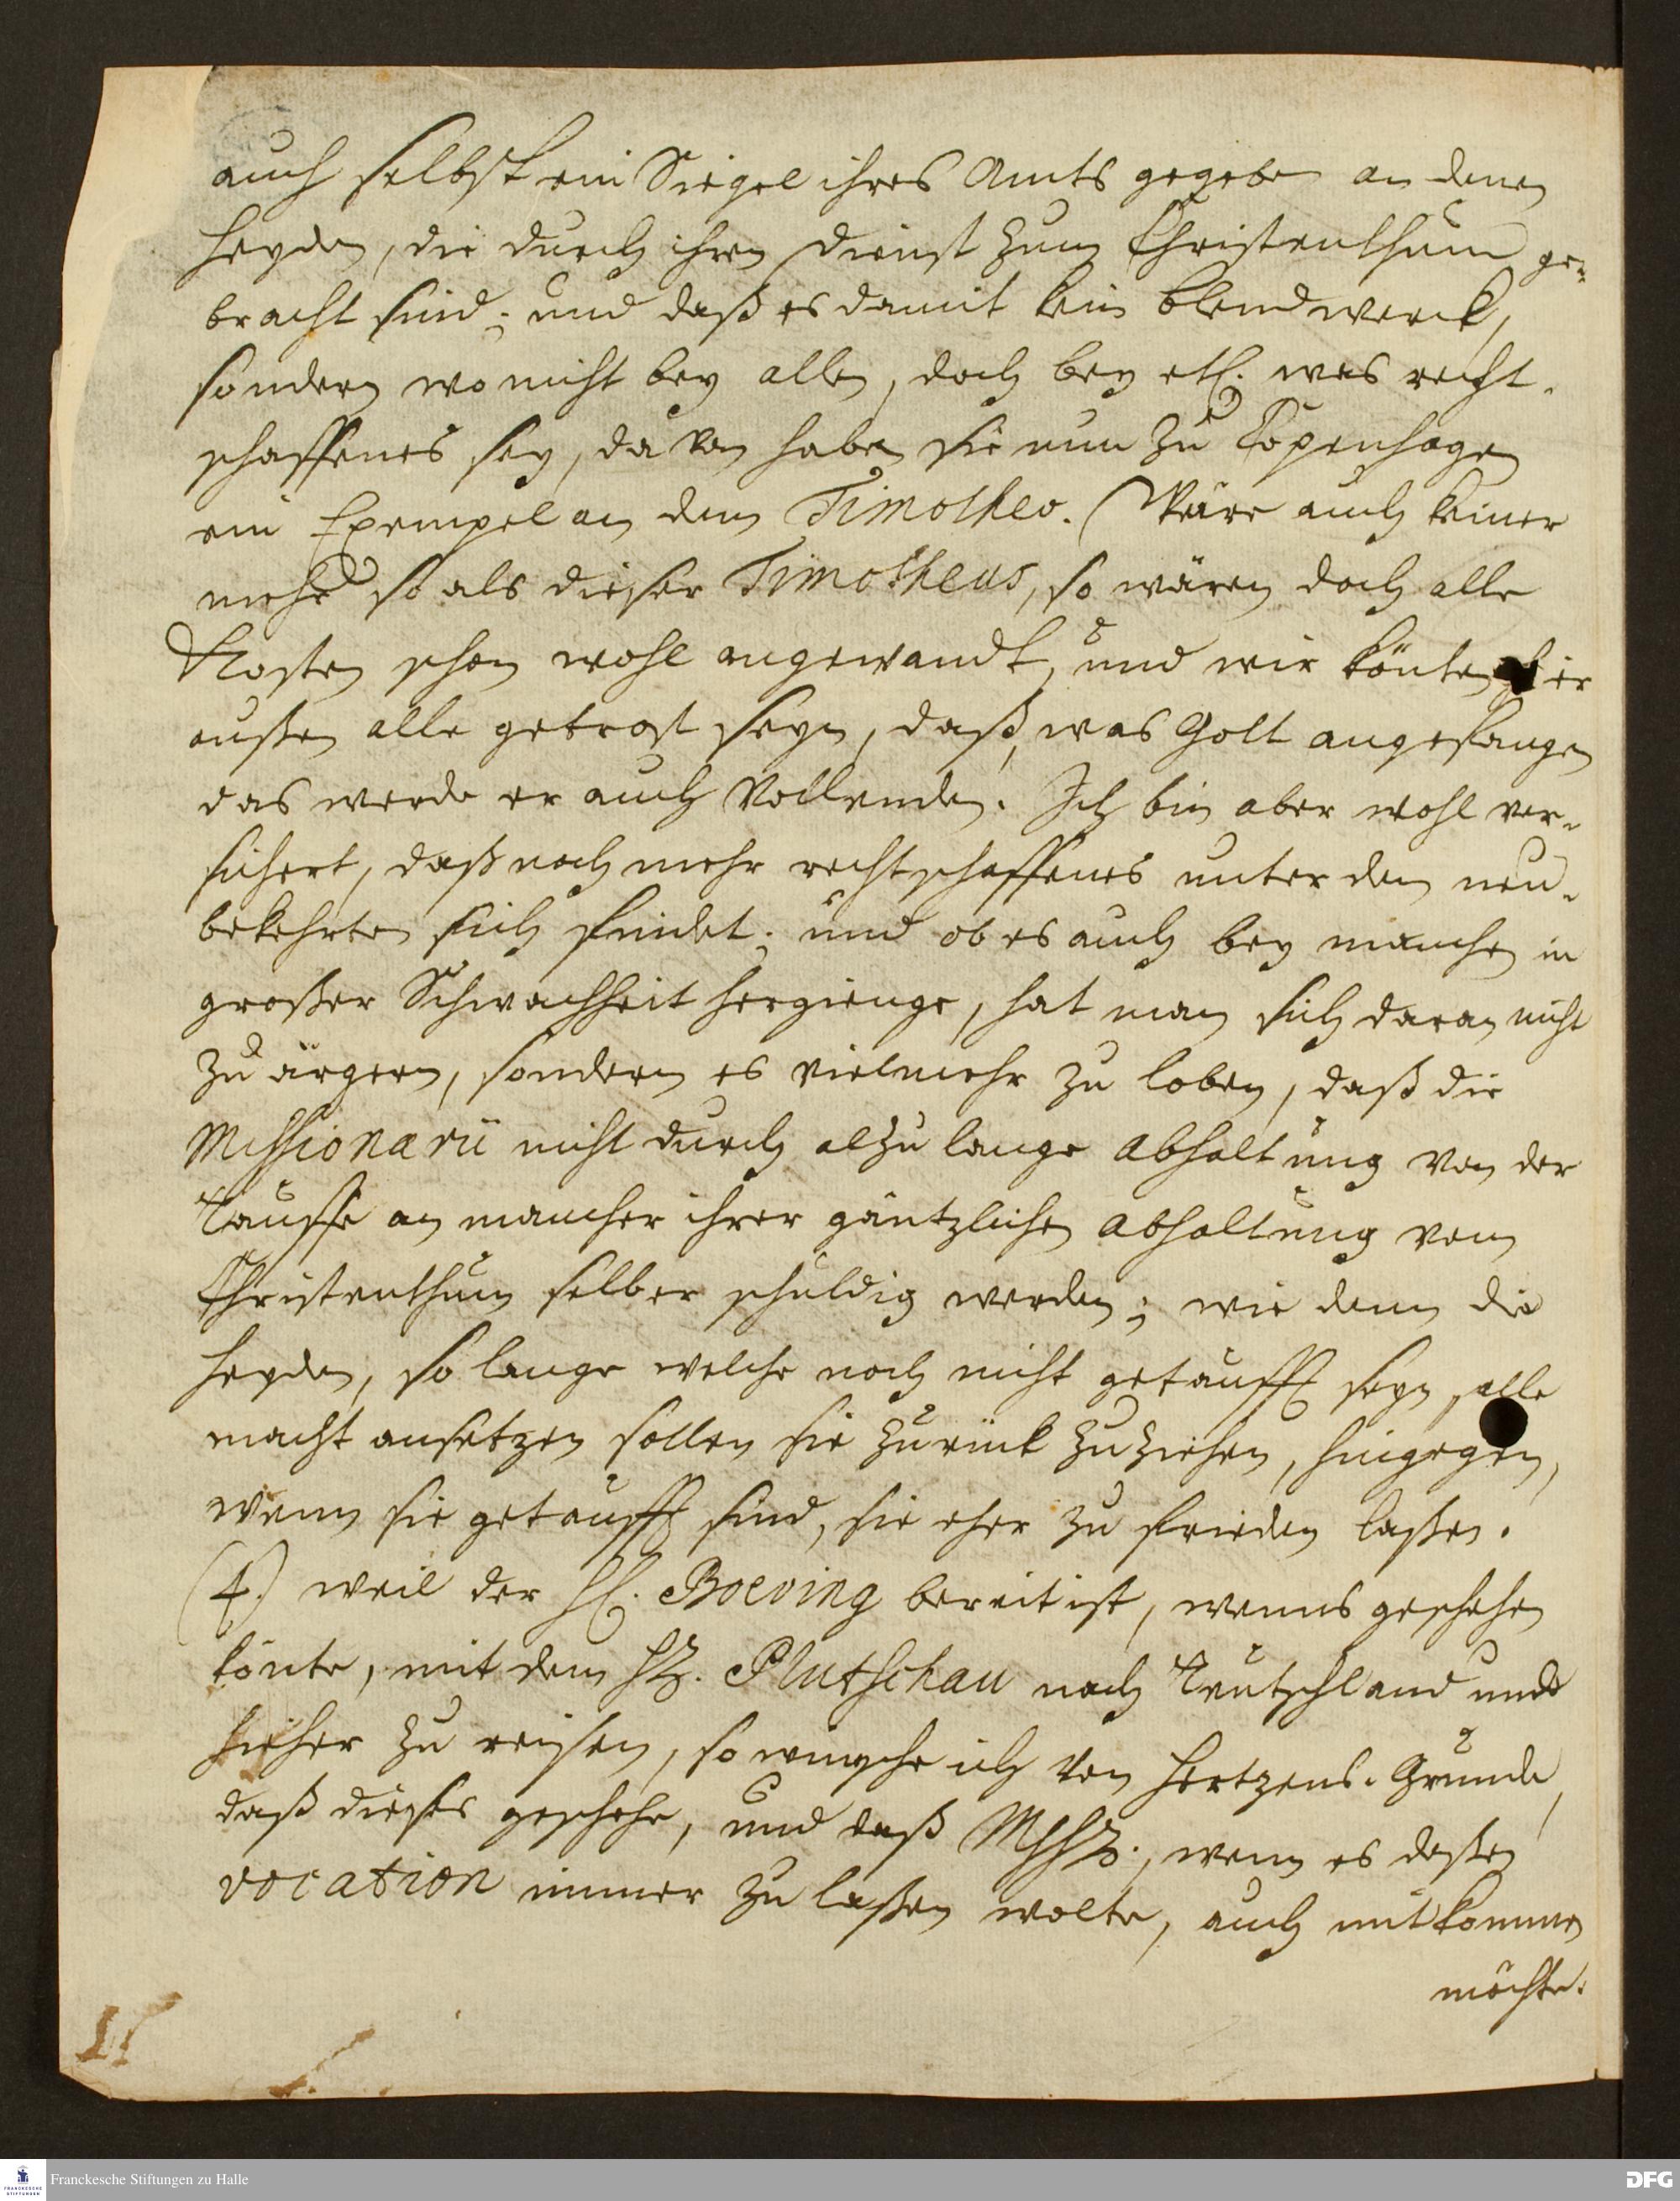 auch selbst ein Siegel ihres Amts gegeben an denen
Heyden, die durch ihren Dienst zum Christenthum ge-
bracht sind; und daß es damit kein blendwerck,
sondern wo nicht bey allen, doch bey etl. was recht-
schaffenes sey, davon haben sie nun zu Copenhagen
ein Exempel an dem Timotheo. Wäre auch keiner
mehr so als dieser Timotheus, so wären doch alle
Kosten schon wohl angewandt, und wir könten hier
außen alle getrost seyn, daß, was Gott angefangen
das werde er auch vollenden. Ich bin aber wohl ver-
sichert, daß noch mehr rechtschaffenes unter den neu-
bekehrten sich findet; und ob es auch bey manchen in
großer Schwachheit hergienge, hat man sich daran nicht
zu ärgern, sondern es vielmehr zu loben, daß die
Missionarii nicht durch alzu lange Abhaltung von der
Tauffe an mancher ihrer gäntzlichen Abhaltung vom
Christenthum selber schuldig werden; wie denn die
Heyden, so lange welche noch nicht getaufft seyn, alle
macht ansetzen sollen sie zurück zu ziehen, hingegen,
wenn sie getaufft sind, sie eher zu frieden laßen.
(4.) weil der H. Boeving bereit ist, wenns geschehen
könte, mit dem H. Plutschau nach Teutschland und
hieher zu reisen, so wünsche ich von Hertzens-Grunde,
daß dieses geschehe, und daß MhH., wenn es deßen
vocation immer zu laßen wolte, auch mitkommen
möchte.
11
Franckesche Stiftungen zu Halle
FRANCKESCHE STIFTUNGEN
DFG